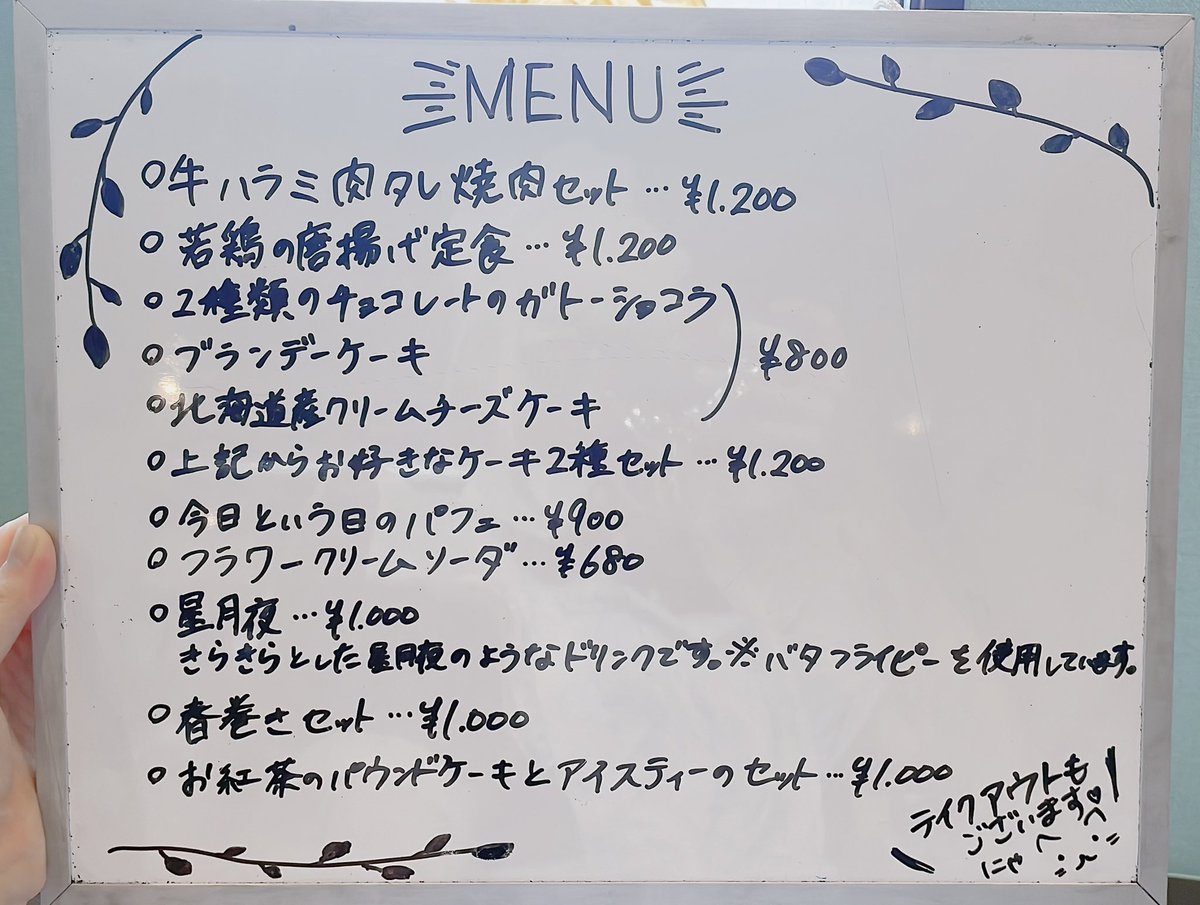 MENU
○牛ハラミ肉タレ焼肉セット…¥1.200
○若鶏の唐揚げ定食…¥1.200
○2種類のチョコレートのガトーショコラ
○ブランデーケーキ
○北海道産クリームチーズケーキ
¥800
○上記からお好きなケーキ2種セット…¥1.200
○今日という日のパフェ…¥900
○フラワークリームソーダ…¥680
○星月夜…¥1.000
きらきらとした星月夜のようなドリンクです。※バタフライピーを使用しています。
○春巻きセット…¥1.000
○お紅茶のパウンドケーキとアイスティーのセット…¥1.000
テイクアウトも
ございます♡